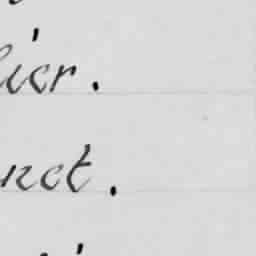 lier.
nct.